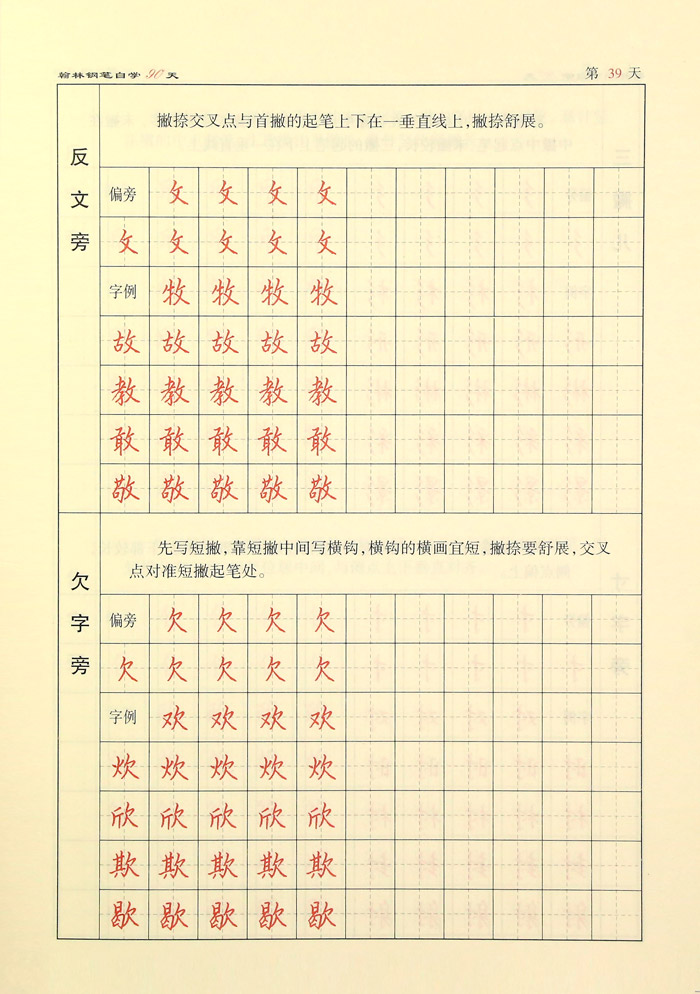 翰林钢笔自学90天 第 39 天
反文旁
撇捺交叉点与首撇的起笔上下在一垂直线上，撇捺舒展。
偏旁 攵 攵 攵 攵
攵 攵 攵 攵 攵
字例 牧 牧 牧 牧
故 故 故 故 故
教 教 教 教 教
敢 敢 敢 敢 敢
敬 敬 敬 敬 敬
欠字旁
先写短撇，靠短撇中间写横钩，横钩的横画宜短，撇捺要舒展，交叉
点对准短撇起笔处。
偏旁 欠 欠 欠 欠
欠 欠 欠 欠 欠
字例 欢 欢 欢 欢
炊 炊 炊 炊 炊
欣 欣 欣 欣 欣
欺 欺 欺 欺 欺
歇 歇 歇 歇 歇